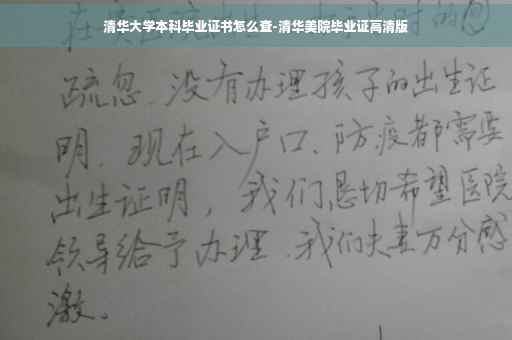 清华大学本科毕业证书怎么查-清华美院毕业证高清版
疏忽、没有办理孩子的出生证
明、现在入户口、防疫都需要
出生证明，我们恳切希望医院
领导给予办理、我们夫妻万分感
激。